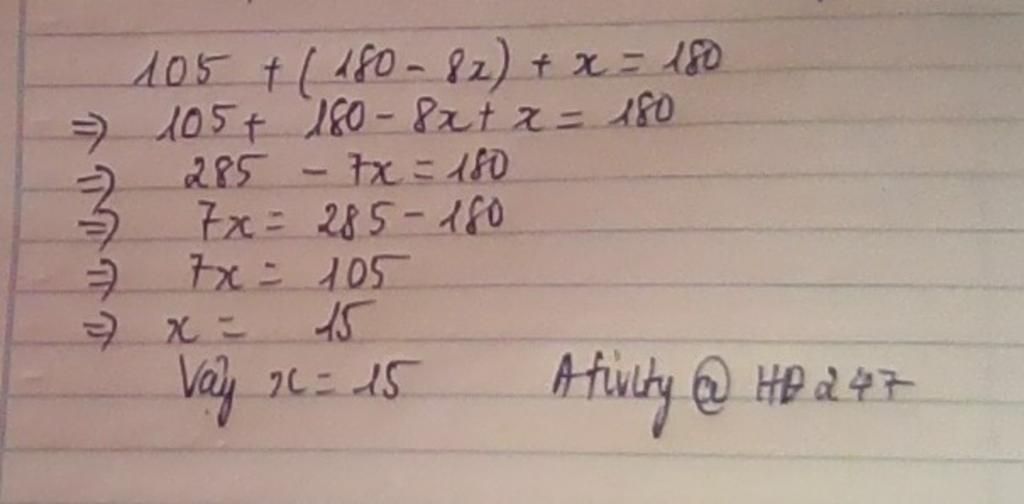 105 + (180 - 8x) + x = 180
=> 105 + 180 - 8x + x = 180
=> 285 - 7x = 180
=> 7x = 285 - 180
=> 7x = 105
=> x = 15
Vậy x = 15 Afivity @ HD 247